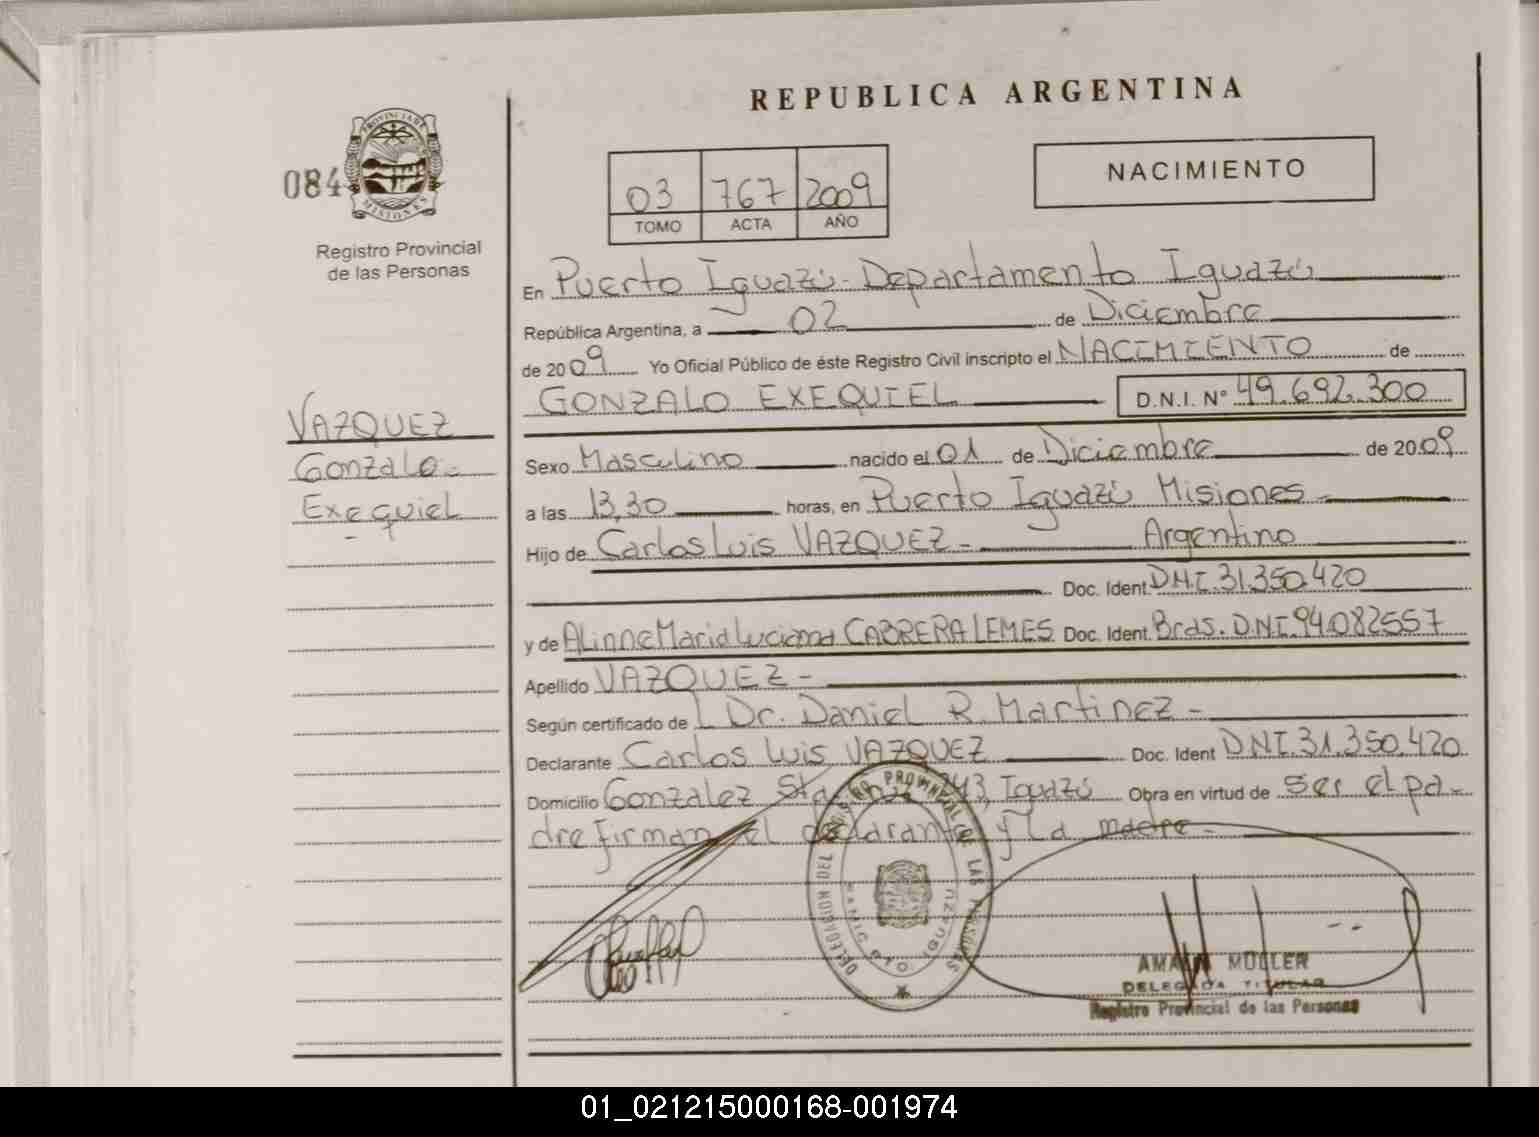 REPUBLICA ARGENTINA
084
PROVINCIA DE
MISIONES
Registro Provincial
de las Personas
03 767 2009
TOMO ACTA AÑO
NACIMIENTO
En Puerto Iguazú - Departamento Iguazú
República Argentina, a 02 de Diciembre
de 2009 Yo Oficial Público de éste Registro Civil inscripto el NACIMIENTO de
GONZALO EXEQUIEL D.N.I. N° 49.692.300
VAZQUEZ
Gonzalo-
Exequiel
-
Sexo Masculino nacido el 01 de Diciembre de 2009
a las 13,30 horas, en Puerto Iguazú Misiones-
Hijo de Carlos Luis VAZQUEZ - Argentino
Doc. Ident. DNI.31.350.420
y de ALinne Maria Luciana CABRERA LEMES Doc. Ident. Bras. DNI.94.082557
Apellido VAZQUEZ-
Según certificado de L Dr. Daniel R. Martinez-
Declarante Carlos Luis VAZQUEZ Doc. Ident DNI.31.350.420
Domicilio Gonzalez 243, Iguazú Obra en virtud de ser el pa-
dre firman el declarante y La madre-
DELEGACION DEL REGISTRO PROVINCIAL DE LAS PERSONAS
MÜLLER
DELEGADA TITULAR
Registro Provincial de las Personas
01_021215000168-001974